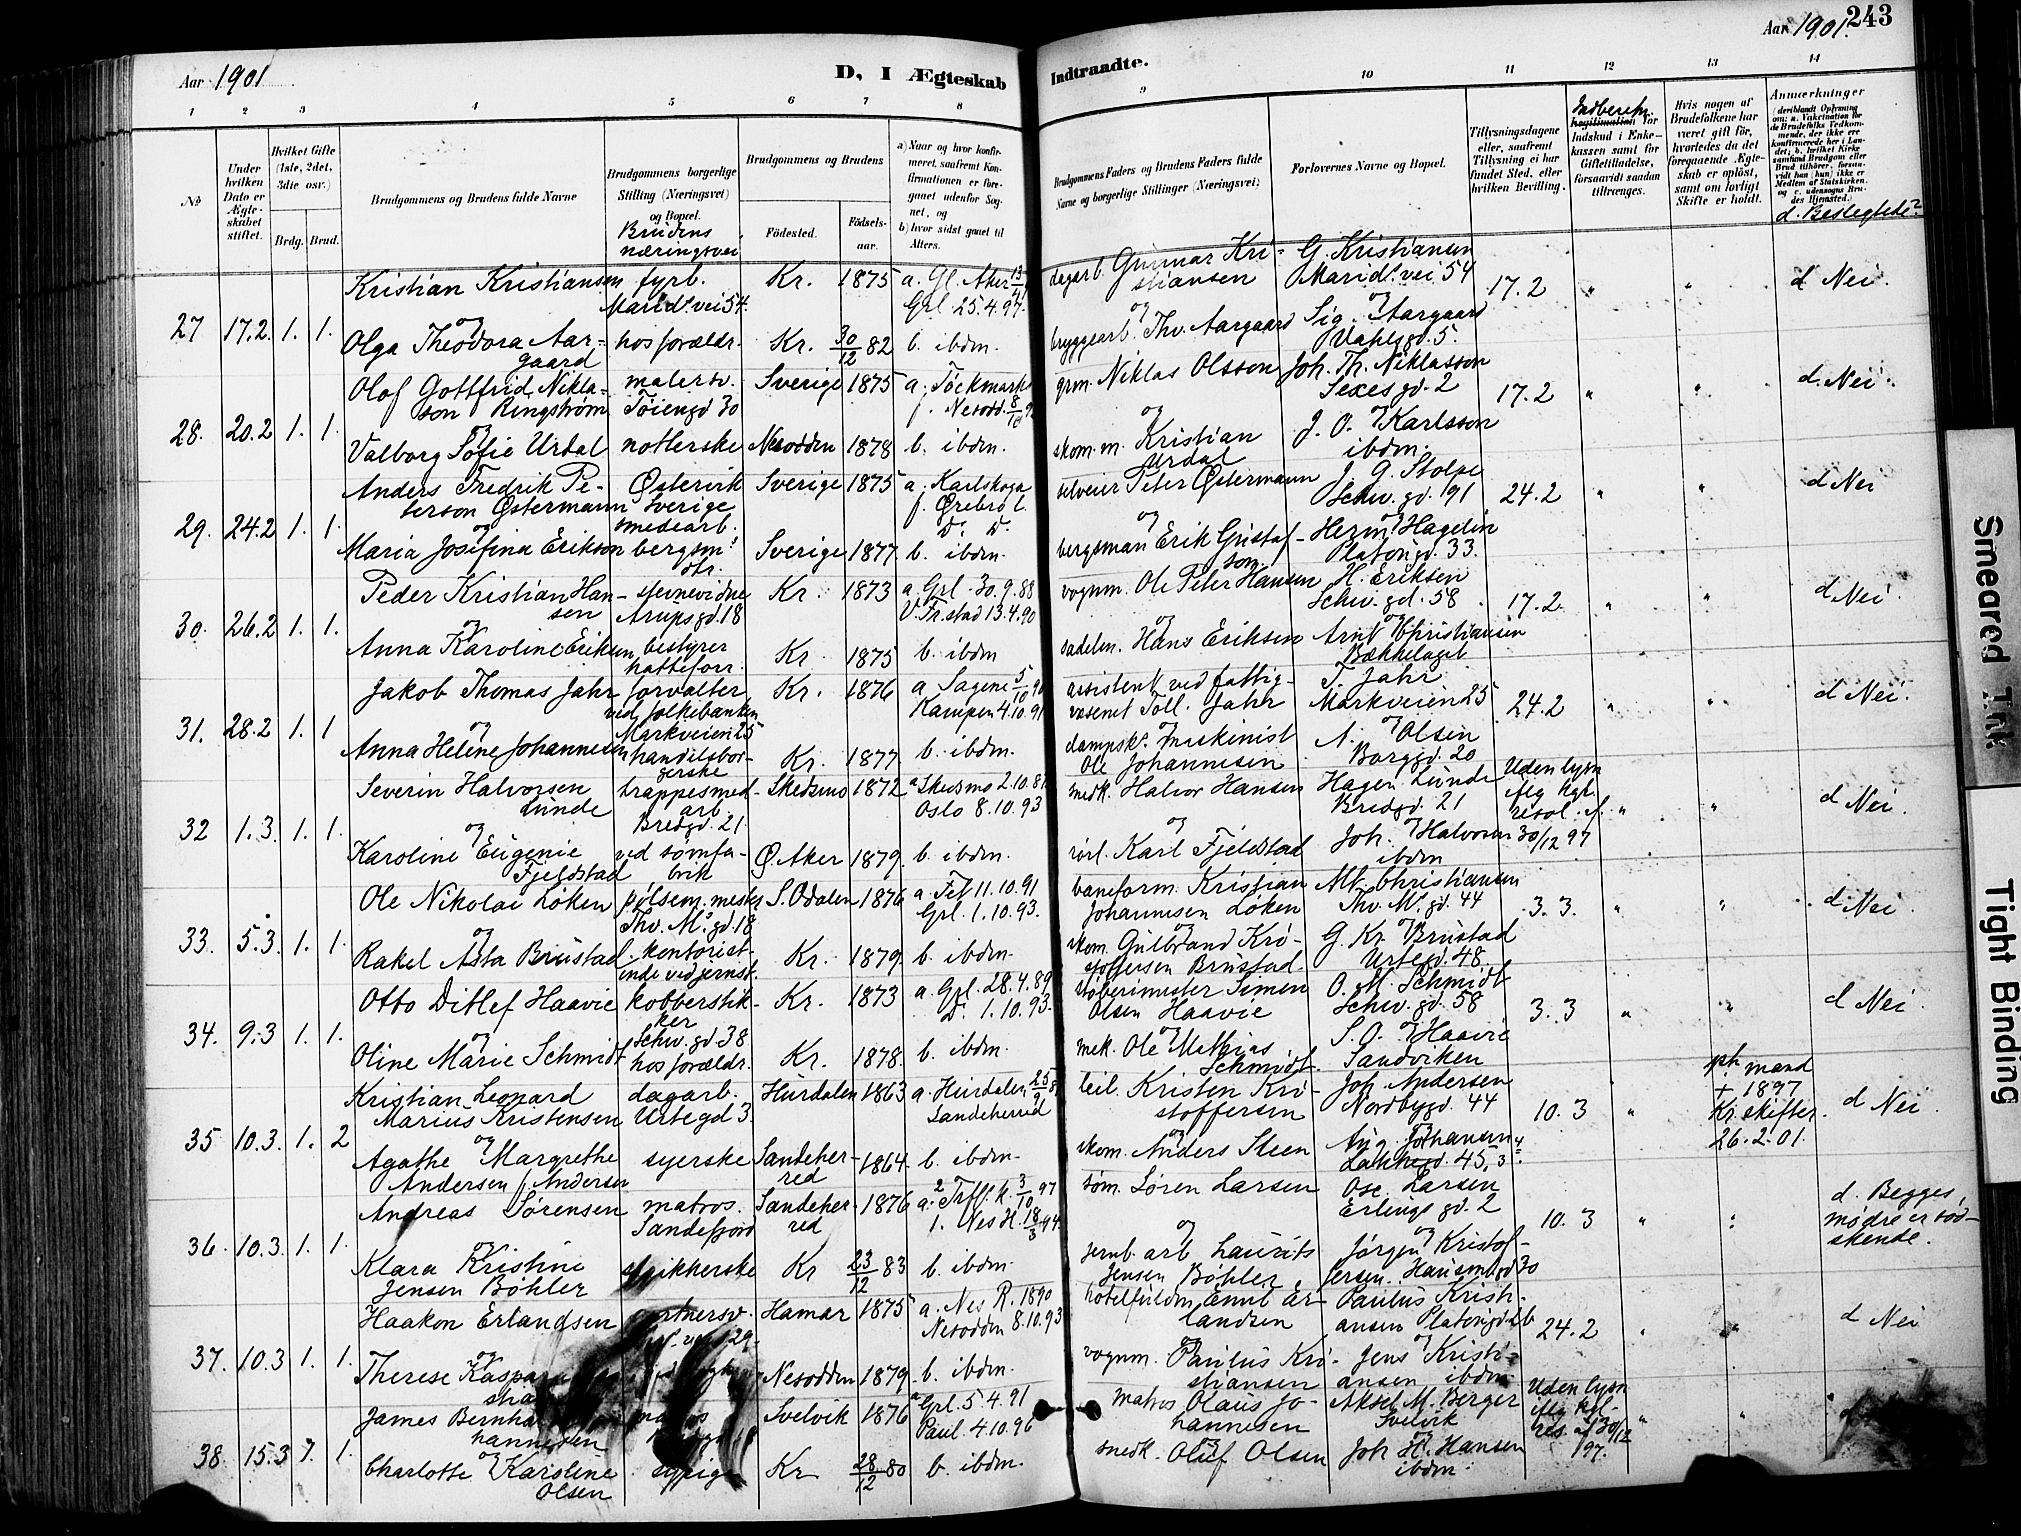 Aar 1901
D, I Ægteskab
Indtraadte.
Aar 1901.
243
1 2 3 4 5 6 7 8 9 10 11 12 13 14
№
Under hvilken Dato er Ægteskabet stiftet.
Hvilket Gifte (1ste, 2det, 3die osv.)
Brdg. Brud.
Brudgommens og Brudens fulde Navne
Brudgommens borgerlige Stilling (Næringsvei) og Bopæl.
Brudens næringsvei
Brudgommens og Brudens
Födested.
Födselsaar.
a) Naar og hvor konfirmeret, saafremt Konfirmationen er foregaaet udenfor Sognet, og
b) hvor sidst gaaet til Alters.
Brudgommens Faders og Brudens Faders fulde Navne og borgerlige Stillinger (Næringsvei)
Forlovernes Navne og Bopæl.
Tillysningsdagene eller, saafremt Tillysning ei har fundet Sted, efter hvilken Bevilling.
Indberetn. Legitimation for Indskud i Enkekassen samt for Giftetilladelse, forsaavidt saadan tiltrænges.
Hvis nogen af Brudefolkene har været gift før, hvorledes da det foregaaende Ægteskab er opløst, samt om lovligt Skifte er holdt.
Anmærkninger
d. Beslegtede?
27 17.2. 1. 1.
Kristian Kristiansen fyrb. Marid.vei 54. Kr. 1875 a. Gl. Aker Grl. 25.4.97. dagarb. Gunnar Kristiansen G. Kristiansen Marid.vei 54 17.2 " " d Nei
og
Olga Theodora Aargaard hos foreldr. Kr. 30/12 82 b. ibdm. bryggearb. Thv. Aargaard Sig. Aargaard Vahlsgd. 5.
28. 20.2 1. 1.
Olof Gottfrid Niklasson Ringstrøm malersv. Töiengd 30 Sverige 1875 a. Töckmark f. Nesodd. grm. Niklas Olsson Joh. Th. Niklasson Sexesgd. 2 17.2 " " d. Nei.
og
Valborg Sofie Urdal notlerske Nesodden 1878 b. ibdm. skom. m. Kristian Urdal J. O. Karlsson ibdm.
29. 24.2 1. 1.
Anders Fredrik Peterson Østermann Østervik Sverige smedearb. Sverige 1875 a. Karlskoga f. Örebro l. D. D. selveier Peter Østermann J. G. Stolpe Schw. gd. 191 24.2 " " d Nei
og
Maria Josefina Erikson bergsm.s dtr. Sverige 1877 b. ibdm. bergsman Erik Gustafson Herm. Hagelin Platousgd. 33.
30. 26.2 1. 1.
Peder Kristian Hansen Arupsgd. 18 Kr. 1873 a. Grl. 30.9.88 V. Fr.stad 13.4.90 vognm. Ole Peter Hansen H. Eriksen Schw. gd. 58 17.2. " " d. Nei.
og
Anna Karoline Eriksen bestyrer hatteforr. Kr. 1875 b. ibdm sadelm. Hans Eriksen Arnt Christiansen Bækkelaget
31. 28.2 1. 1
Jakob Thomas Jahr forvalter ved folkebanken Markveien 25 Kr. 1876 a Sagene 5/10 90 Kampen 4.10.91 assistent ved fattigvæsenet Toll. Jahr T. Jahr Markveien 25 24.2 " " d Nei.
og
Anna Helene Johannesen handelsborgerske Kr. 1877 b. ibdm. dampsk. maskinist Ole Johannesen A. Olsen Borggd. 20
32 1.3. 1. 1.
Severin Halvorsen Lunde trappesmed-arb. Bredgd. 21. Skedsmo 1872 a Skedsmo 2.10.87 Oslo 8.10.93 snedk. Halvor Hansen Hagen Lunde Bredgd. 21 Uden lysn iflg kgl. resol. af 30/12 97 " " d Nei.
og
Karoline Eugenie Fjeldstad ved sømfabrik Ø. Aker 1879. b. ibdm. rørl. Karl Fjeldstad Joh. Halvorsen ibdm
33. 5.3. 1. 1.
Ole Nikolai Løken pølsem. mester Thv. M.s gd. 18 S. Odalen 1876 a. Fet 11.10.91 Grl. 1.10.93. baneform. Kristian Johannesen Løken Alb. Christiansen Thv. M.s gd. 44 3.3. " " d. Nei.
og
Rakel Asta Brustad kontoristinde ved jernst. Kr. 1879. b. ibdm. skom. Gulbrand Kristoffersen Brustad G. Kr. Brustad Urtegd. 48.
34. 9.3 1. 1.
Otto Ditlef Haavie kobberstikker Schw. gd. 38 Kr. 1873 a. Grl. 28.4.89 D. 1.10.93. støberimester Simen Olsen Haavie O. M. Schmidt Schw. gd. 58 3.3 " " d Nei.
og
Oline Marie Schmidt hos foreldr. Kr. 1878. b. ibdm. mek. Ole Mathias Schmidt S. O. Haavie Sandviken
35 10.3. 1. 2
Kristian Leonard Marius Kristensen dagarb. Urtegd 3. Hurdalen 1863 a. Hurdalen Sandeherred leil. Kristen Kristoffersen Joh. Andersen Nordbygd. 44 10.3 " mand + 1897 Kr. skifter. 26.2.01. d Nei.
og
Agathe Margrethe Andersen f. Andersen syerske Sandeherred 1864. b. ibdm. skom. Anders Steen Aug. Johansen Lakkegd. 45, 3.
36. 10.3. 1. 1.
Andreas Sørensen matros. Sandefjord Sandeherred 1876 a. Trfl. k. 3/10 97 f. Nes H. 18/3 94. søm. Søren Larsen Osc. Larsen Erlings gd. 2 10.3 " " d. Begges mødre er sødskende.
og
Klara Kristine Jensen Böhler strikkerske Kr 23/12 83 b. ibdm. jernb. arb Laurits Jensen Böhler Jörgen Kristoffersen. Hausmsgd 30
37. 10.3 1. 1.
Haakon Erlandsen gartnersv. Hamar 1875 a. Nes R. 1890 Nesodden 8.10.93 hotelfuldm. Emil Erlandsen Paulus Kristiansen Platousgd 26 24.2 " " d Nei
og
Therese Kaspara Nesodden 1879. b. ibdm. vognm. Paulus Kristiansen Jens Kristiansen ibdm
38. 15.3 1. 1.
James Bernhard Johannesen matros Svelvik 1876 a Grl. 5.4.91 Paul. 4.10.96 matros Olaus Johannesen Aksel M. Berger Svelvik Uden lysn iflg kgl. res. af 30/12 97. " "
og
Charlotte Karoline Olsen sypige Kr 28/12 80 b. ibdm. snedk. Oluf Olsen Joh H. Hansen ibdm.
Smeared Ink
Tight Binding